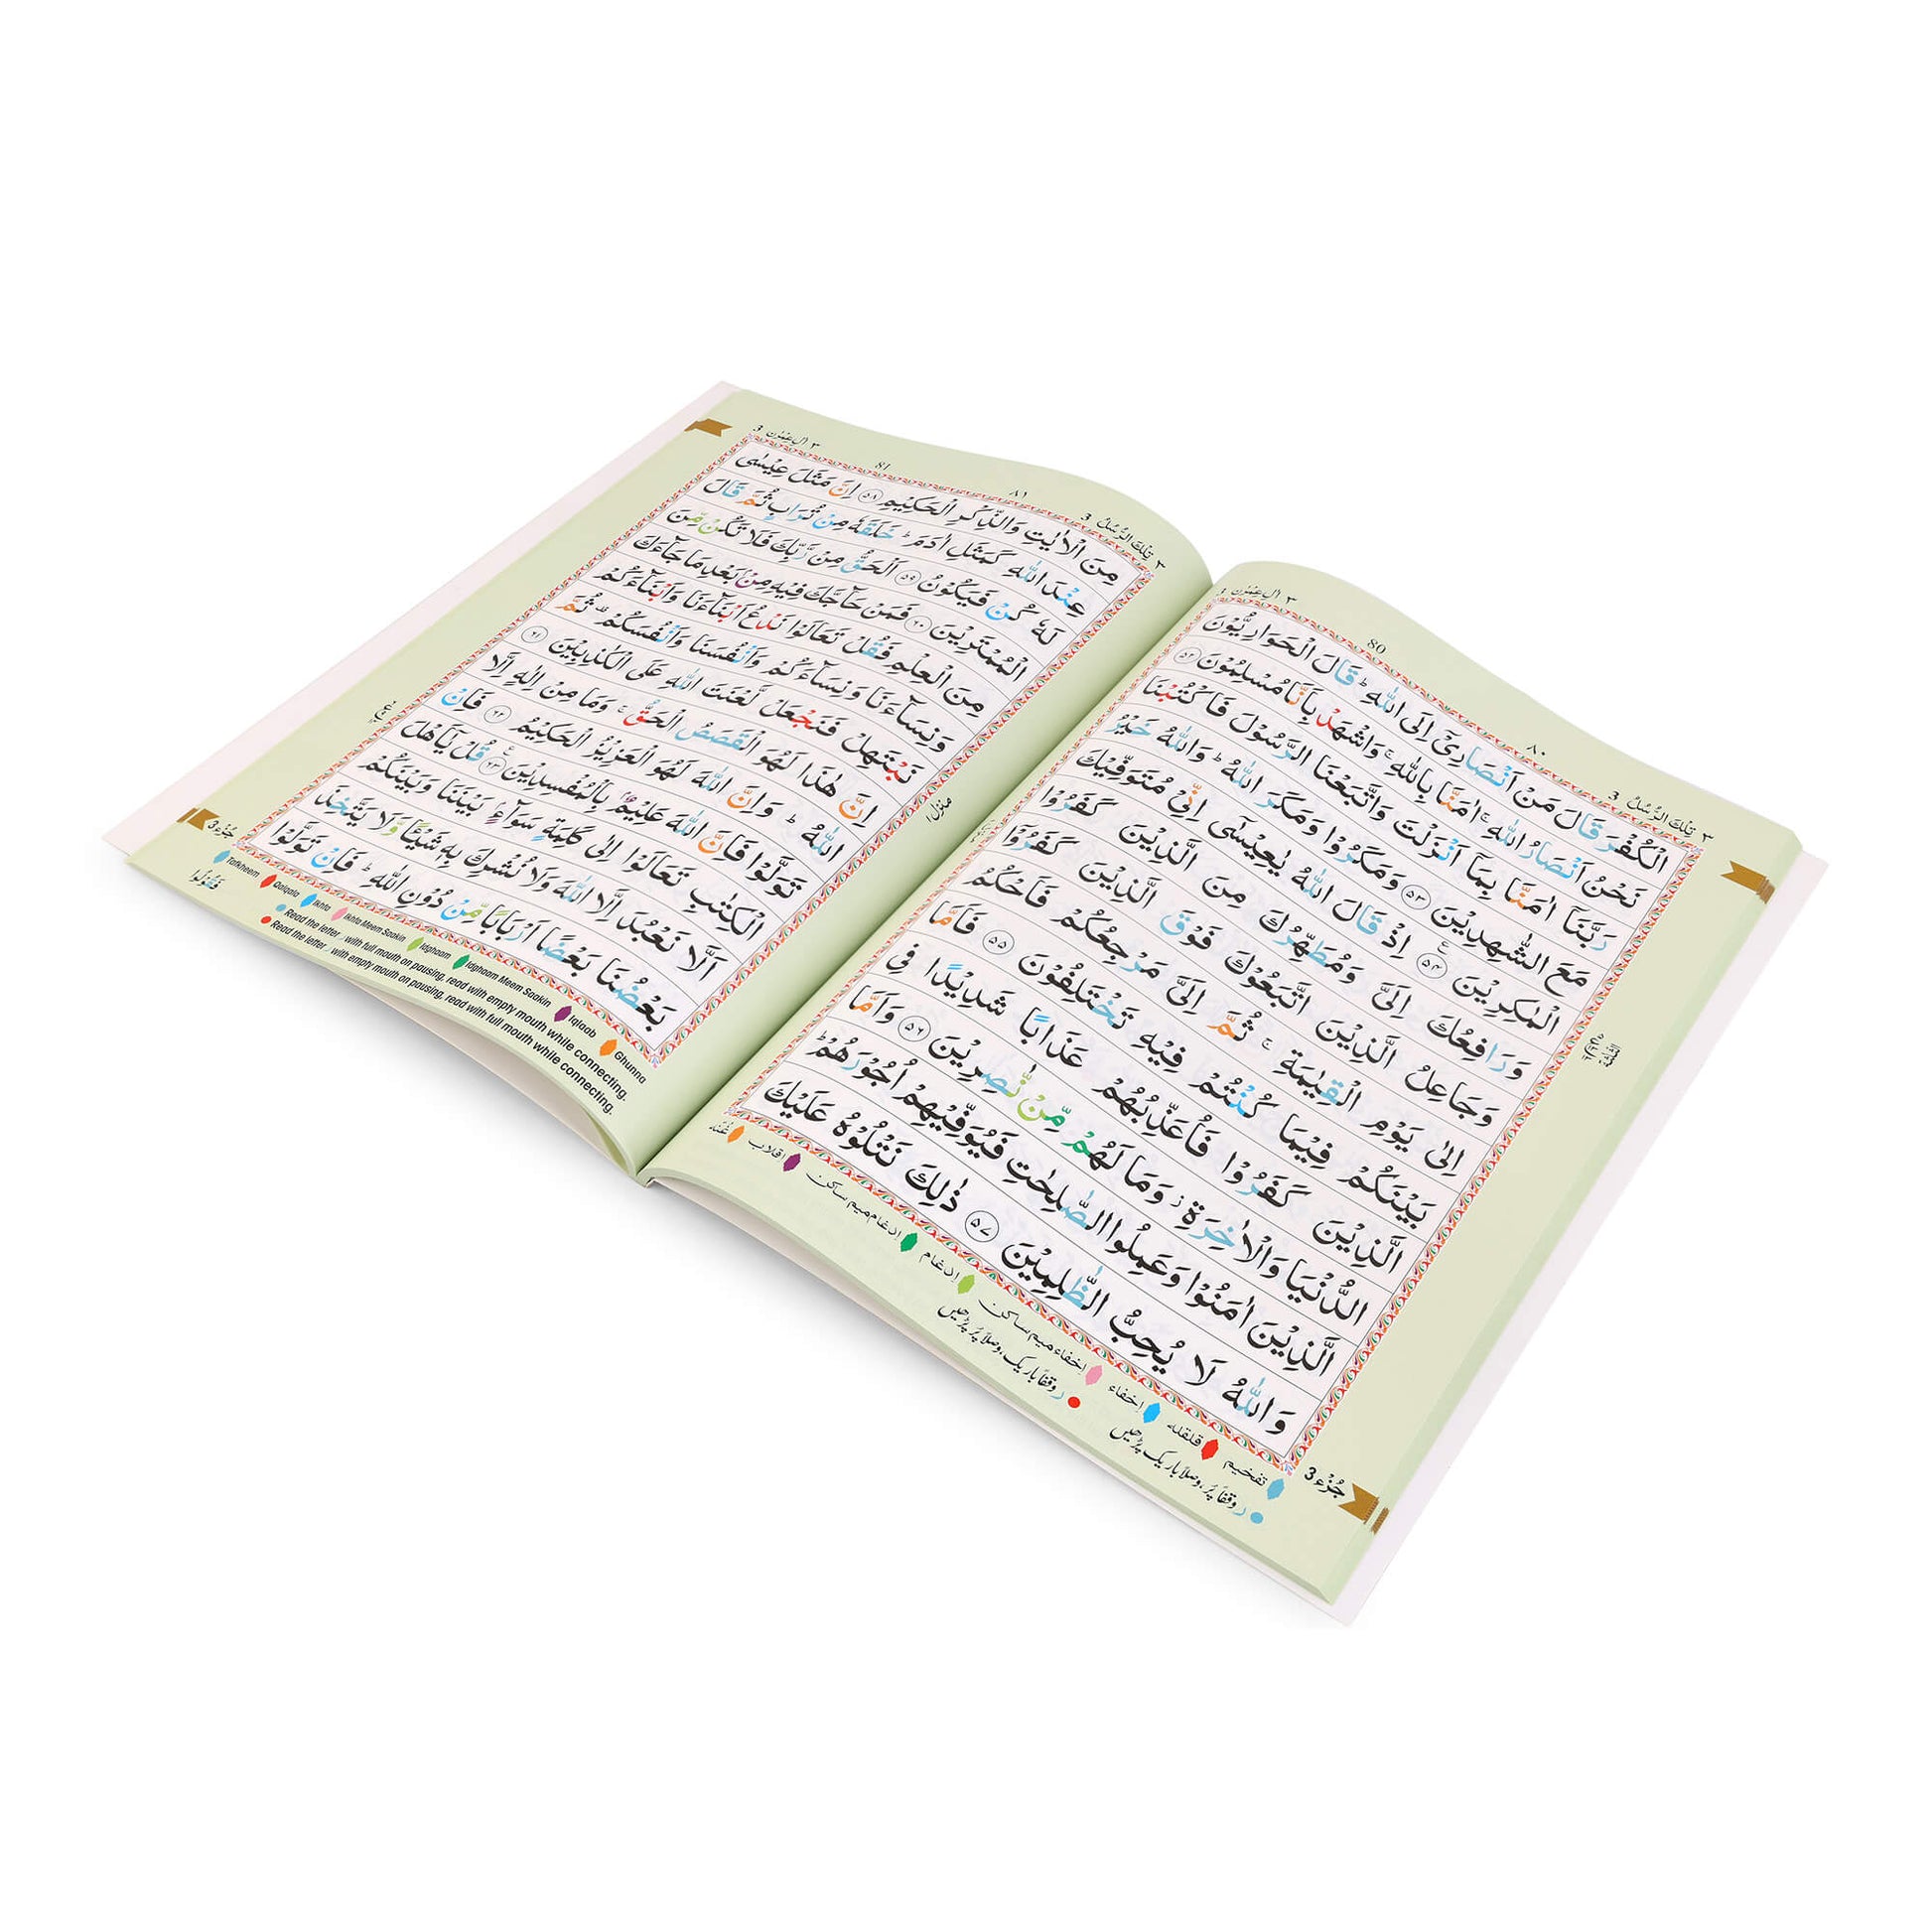 ٣ تِلْكَ الرُّسُلُ 3
٨٠
80
٣ اٰلِ عِمْرٰن 3
الْكُفْرَ قَالَ مَنْ اَنْصَارِیْۤ اِلَى اللّٰهِ ؕ قَالَ الْحَوَارِیُّوْنَ
نَحْنُ اَنْصَارُ اللّٰهِ ۚ اٰمَنَّا بِاللّٰهِ ۚ وَاشْهَدْ بِاَنَّا مُسْلِمُوْنَ ٥٢
رَبَّنَاۤ اٰمَنَّا بِمَاۤ اَنْزَلْتَ وَاتَّبَعْنَا الرَّسُوْلَ فَاكْتُبْنَا
مَعَ الشّٰهِدِیْنَ ٥٣ وَمَكَرُوْا وَمَكَرَ اللّٰهُ ؕ وَاللّٰهُ خَیْرُ
الْمٰكِرِیْنَ ٥٤ اِذْ قَالَ اللّٰهُ یٰعِیْسٰۤى اِنِّیْ مُتَوَفِّیْكَ
وَرَافِعُكَ اِلَیَّ وَمُطَهِّرُكَ مِنَ الَّذِیْنَ كَفَرُوْا
وَجَاعِلُ الَّذِیْنَ اتَّبَعُوْكَ فَوْقَ الَّذِیْنَ كَفَرُوْۤا
اِلٰى یَوْمِ الْقِیٰمَةِ ۚ ثُمَّ اِلَیَّ مَرْجِعُكُمْ فَاَحْكُمُ
بَیْنَكُمْ فِیْمَا كُنْتُمْ فِیْهِ تَخْتَلِفُوْنَ ٥٥ فَاَمَّا
الَّذِیْنَ كَفَرُوْا فَاُعَذِّبُهُمْ عَذَابًا شَدِیْدًا فِی
الدُّنْیَا وَالْاٰخِرَةِ ؗ وَمَا لَهُمْ مِّنْ نّٰصِرِیْنَ ٥٦ وَاَمَّا
الَّذِیْنَ اٰمَنُوْا وَعَمِلُوا الصّٰلِحٰتِ فَیُوَفِّیْهِمْ اُجُوْرَهُمْ ؕ
وَاللّٰهُ لَا یُحِبُّ الظّٰلِمِیْنَ ٥٧ ذٰلِكَ نَتْلُوْهُ عَلَیْكَ
جُزْء 3
تفخیم قلقله اِخفاء اِخفاء میم ساکن اِدغام اِدغام میم ساکن اقلاب غُنّه
ر وقفاً پُر، وصلاً باریک پڑھیں
ر وقفاً باریک، وصلاً پُر پڑھیں
٣ تِلْكَ الرُّسُلُ 3
٨١
81
٣ اٰلِ عِمْرٰن 3
مِنَ الْاٰیٰتِ وَالذِّكْرِ الْحَكِیْمِ ٥٨ اِنَّ مَثَلَ عِیْسٰى
عِنْدَ اللّٰهِ كَمَثَلِ اٰدَمَ ؕ خَلَقَهٗ مِنْ تُرَابٍ ثُمَّ قَالَ
لَهٗ كُنْ فَیَكُوْنُ ٥٩ اَلْحَقُّ مِنْ رَّبِّكَ فَلَا تَكُنْ مِّنَ
الْمُمْتَرِیْنَ ٦٠ فَمَنْ حَآجَّكَ فِیْهِ مِنْۢ بَعْدِ مَا جَآءَكَ
مِنَ الْعِلْمِ فَقُلْ تَعَالَوْا نَدْعُ اَبْنَآءَنَا وَاَبْنَآءَكُمْ
وَنِسَآءَنَا وَنِسَآءَكُمْ وَاَنْفُسَنَا وَاَنْفُسَكُمْ ۫ ثُمَّ
نَبْتَهِلْ فَنَجْعَلْ لَّعْنَتَ اللّٰهِ عَلَى الْكٰذِبِیْنَ ٦١
اِنَّ هٰذَا لَهُوَ الْقَصَصُ الْحَقُّ ۚ وَمَا مِنْ اِلٰهٍ اِلَّا
اللّٰهُ ؕ وَاِنَّ اللّٰهَ لَهُوَ الْعَزِیْزُ الْحَكِیْمُ ٦٢ فَاِنْ
تَوَلَّوْا فَاِنَّ اللّٰهَ عَلِیْمٌۢ بِالْمُفْسِدِیْنَ ٦٣ قُلْ یٰۤاَهْلَ
الْكِتٰبِ تَعَالَوْا اِلٰى كَلِمَةٍ سَوَآءٍۭ بَیْنَنَا وَبَیْنَكُمْ
اَلَّا نَعْبُدَ اِلَّا اللّٰهَ وَلَا نُشْرِكَ بِهٖ شَیْـًٔا وَّلَا یَتَّخِذَ
بَعْضُنَا بَعْضًا اَرْبَابًا مِّنْ دُوْنِ اللّٰهِ ؕ فَاِنْ تَوَلَّوْا
منزل ١
جُزْء 3
فَقُوْلُوا
Tafkheem Qalqala Ikhfa Ikhfa Meem Saakin Idghaam Idghaam Meem Saakin Iqlaab Ghunna
Read the letter ر with full mouth on pausing, read with empty mouth while connecting.
Read the letter ر with empty mouth on pausing, read with full mouth while connecting.